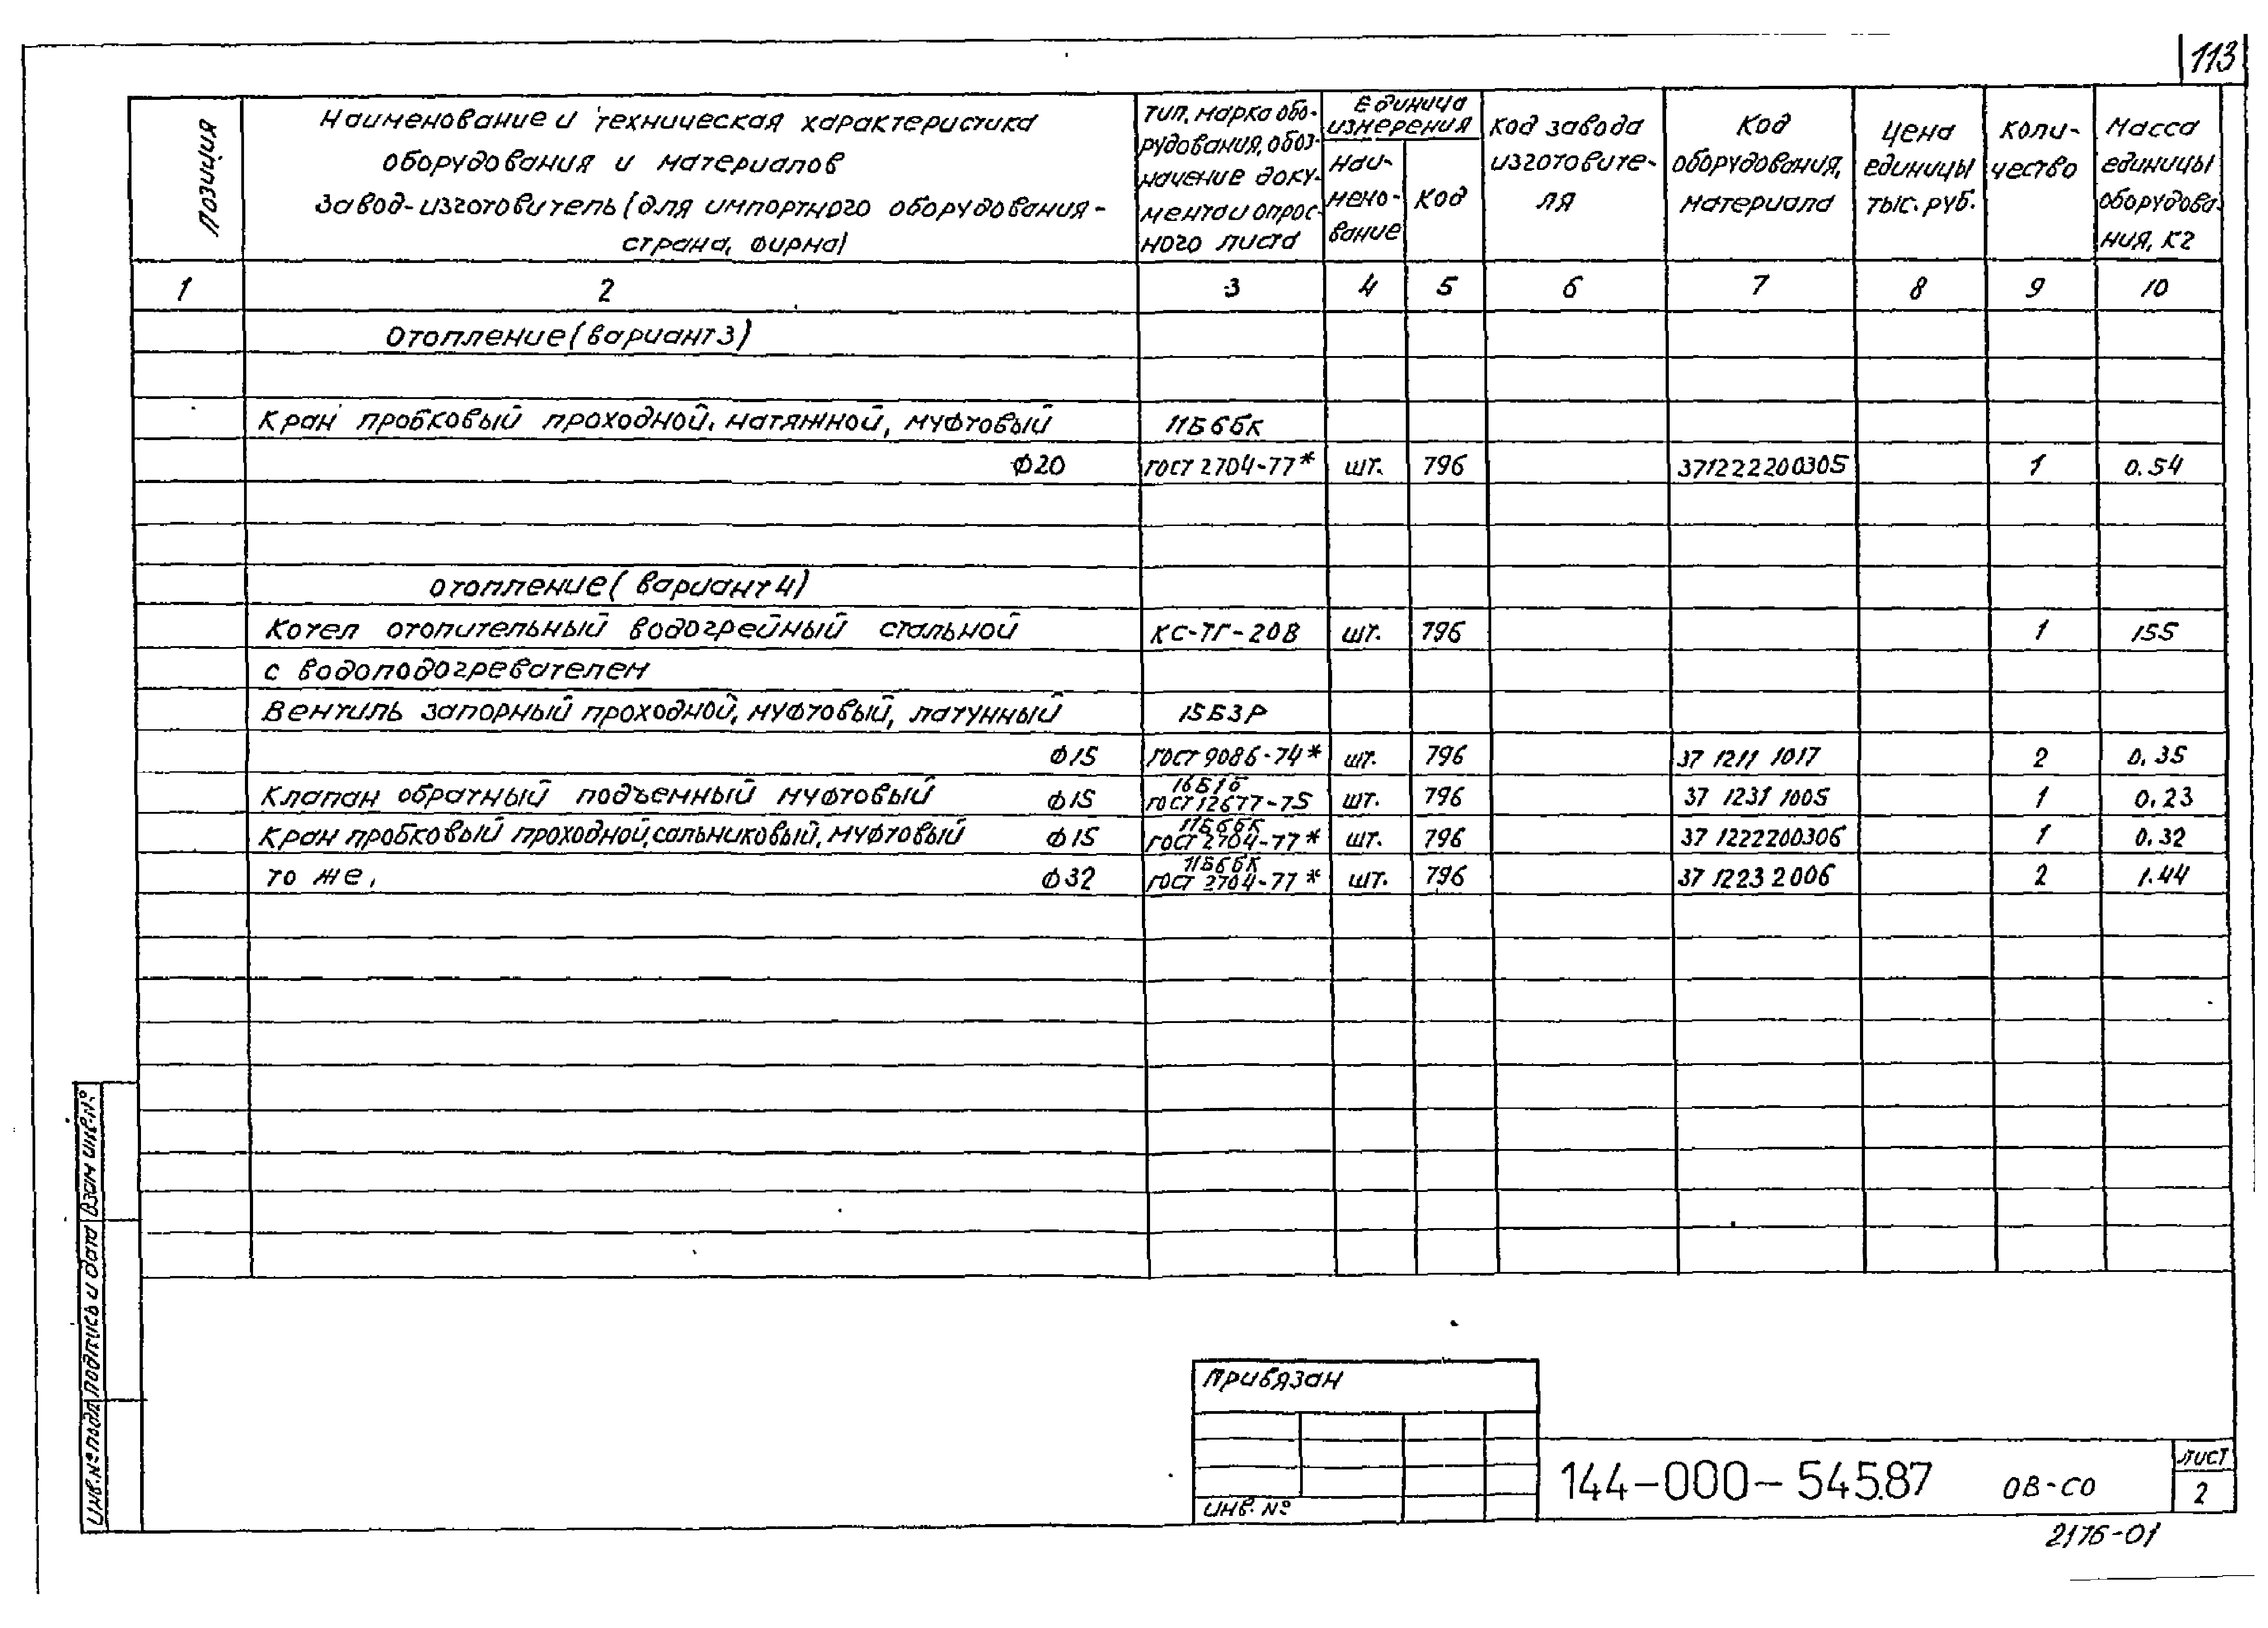 113
Позиция
Наименование и техническая характеристика
оборудования и материалов
Завод-изготовитель (для импортного оборудования-
страна, фирма)
Тип, марка обо-
рудования, обоз-
начение доку-
мента и опрос-
ного листа
Единица
измерения
наи-
мено-
вание
Код
Код завода
изготовите-
ля
Код
оборудования,
материала
Цена
единицы
тыс. руб.
Коли-
чество
Масса
единицы
оборудова-
ния, кг
1 2 3 4 5 6 7 8 9 10
Отопление (вариант 3)
Кран пробковый проходной, натяжной, муфтовый 11Б6бк
Ф20 ГОСТ 2704-77* шт. 796 371222200305 1 0.54
Отопление (вариант 4)
Котел отопительный водогрейный стальной КС-ТГ-20В шт. 796 1 155
с водоподогревателем
Вентиль запорный проходной, муфтовый, латунный 15Б3Р
Ф15 ГОСТ 9086-74* шт. 796 37 1211 1017 2 0.35
Клапан обратный подъемный муфтовый Ф15 16Б1б ГОСТ 12677-75 шт. 796 37 1231 1005 1 0,23
Кран пробковый проходной, сальниковый, муфтовый Ф15 11Б6бк ГОСТ 2704-77* шт. 796 37 1222200306 1 0.32
То же, Ф32 11Б6бк ГОСТ 2704-77* шт. 796 37 1223 2006 2 1.44
Взам инв.№
Подпись и дата
Инв.№ подл
Привязан
Инв. №
144-000-545.87 ОВ-СО
Лист
2
2176-01